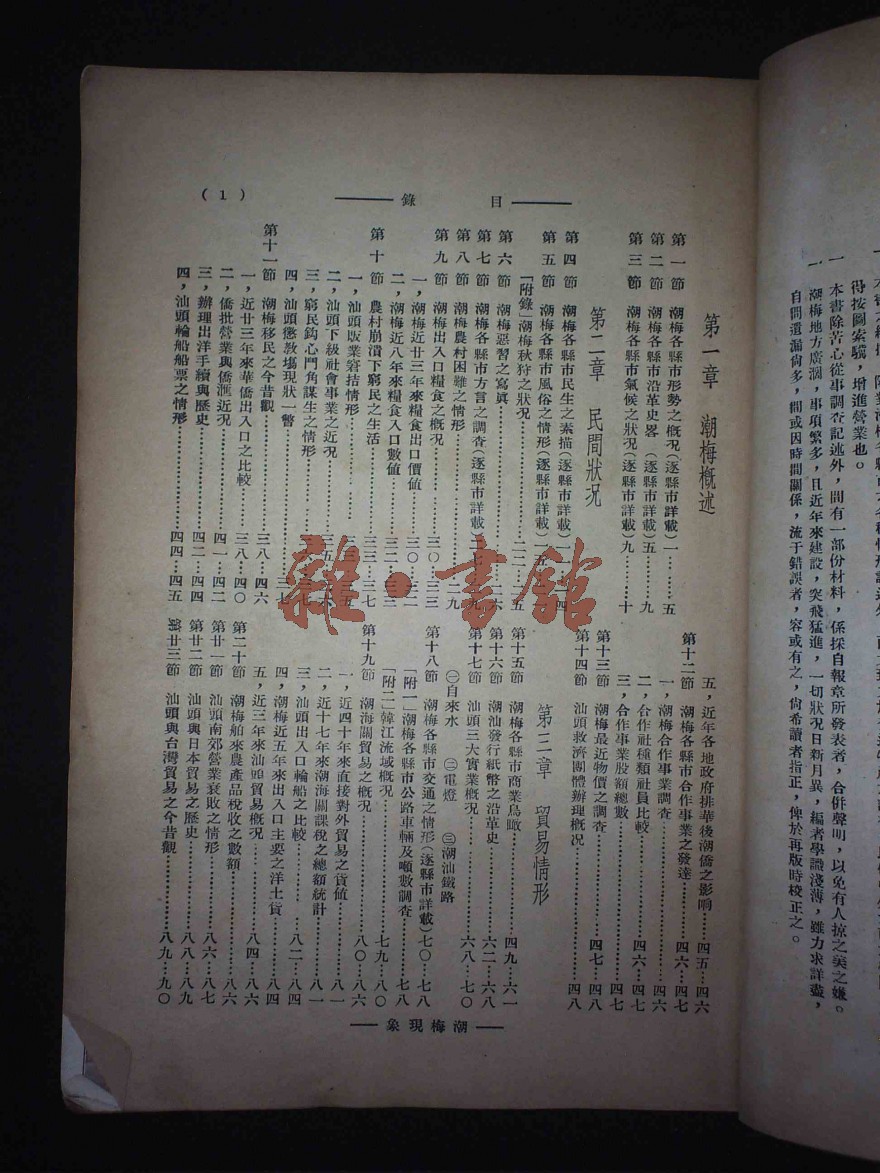 得按圖索驥，增進營業也。
一 本書除苦心從事調查記述外，間有一部份材料，係採自報章所發表者，合併聲明，以免有人掠之美之嫌。
一、潮梅地方廣濶，事項繁多，且近年來建設，突飛猛進，一切狀況日新月異，編者學識淺薄，雖力求詳盡，
自問遺漏尙多，間或因時間關係，流于錯誤者，容或有之，尙希讀者指正，俾於再版時校正之。
目錄
(1)
第一章 潮梅概述
第一節 潮梅各縣市形勢之概況(逐縣市詳載)一……五
第二節 潮梅各縣市沿革史畧(逐縣市詳載)五……九
第三節 潮梅各縣市氣候之狀況(逐縣市詳載)九……十
第二章 民間狀況
第四節 潮梅各縣市民生之素描(逐縣市詳載)
第五節 潮梅各縣市風俗之情形(逐縣市詳載)
「附錄」潮梅秋狩之狀況
第六節 潮梅惡習之寫眞
第七節 潮梅各縣市方言之調查(逐縣市詳載)
第八節 潮梅農村困難之情形
第九節 潮梅出入口糧食之概況……三〇
一，潮梅近廿三年來糧食出口價値……三〇
二，潮梅近八年來糧食入口數値……三二
第十節 農村崩潰下窮民之生活……三三
一，汕頭販業窘拮情形
二，汕頭下級社會事業之近況
三，窮民鈎心鬥角謀生之情形
四，汕頭懲敎塲現狀一瞥
第十一節 潮梅移民之今昔觀……三八…四六
一，近廿三年來華僑出入口之比較……三八…四〇
二，僑批營業與僑滙近況……四一…四二
三，辦理出洋手續與歷史……四二…四四
四，汕頭輪船船票之情形……四四…四五
五，近年各地政府排華後潮僑之影响……四五…四六
第十二節 潮梅各縣市合作事業之發達……四六…四七
一，潮梅合作事業調查……四六
二，合作社種類社員比較……四六
三，合作事業股額總數……四七
第十三節 潮梅最近物價之調查……四七…四八
第十四節 汕頭救濟團體辦理概况……四八
第三章 貿易情形
第十五節 潮梅各縣市商業鳥瞰……四九…六一
第十六節 潮汕發行紙幣之沿革史……六二…六八
第十七節 汕頭三大實業概况……六八…七〇
㊀自來水 ㊁電燈 ㊂潮汕鐵路
第十八節 潮梅各縣市交通之情形(逐縣市詳載)七〇…七八
「附一」潮梅各縣市公路車輛及噸數調查……七八
「附二」韓江流域概况……七九…八〇
第十九節 潮海關貿易之概況……八〇…八六
一，近四十年來直接對外貿易之貨値……八一
二，近十七年來潮海關課稅之總額統計……八一
三，汕頭出入口輪船之比較……八二…八四
四，潮梅近五年來出入口主要之洋土貨……八四
五，近三年來汕頭貿易概況……八四…八六
第二十節 潮梅舶來農產品稅收之數額……八六
第廿一節 汕頭南郊營業衰敗之情形……八六…八七
第廿二節 汕頭與日本貿易之歷史……八八…八九
第廿三節 汕頭與台灣貿易之今昔觀……八九…九〇
潮梅現象
雜·書館